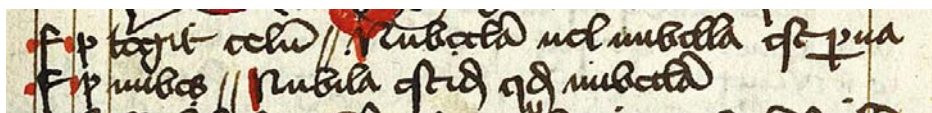 .f. p tegit celū // Nubecla uel nubella est ꝑua
.f. p nubes // Nubila est id qđ nubecla